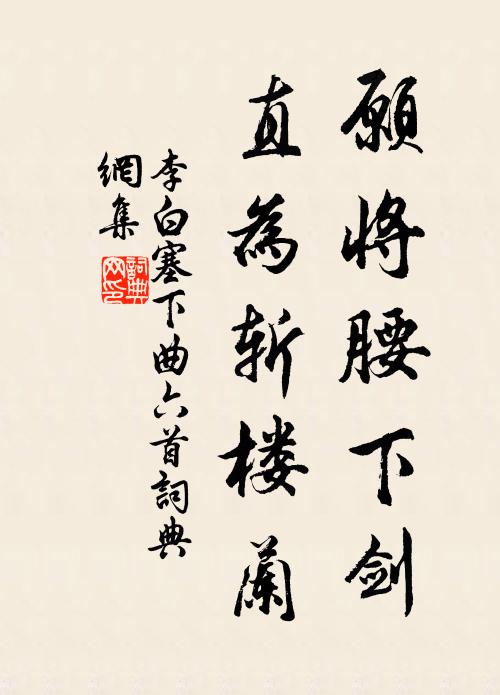 願将腰下剑
直為斬楼蘭
李白塞下曲六首詞典
網集
詞典
网印